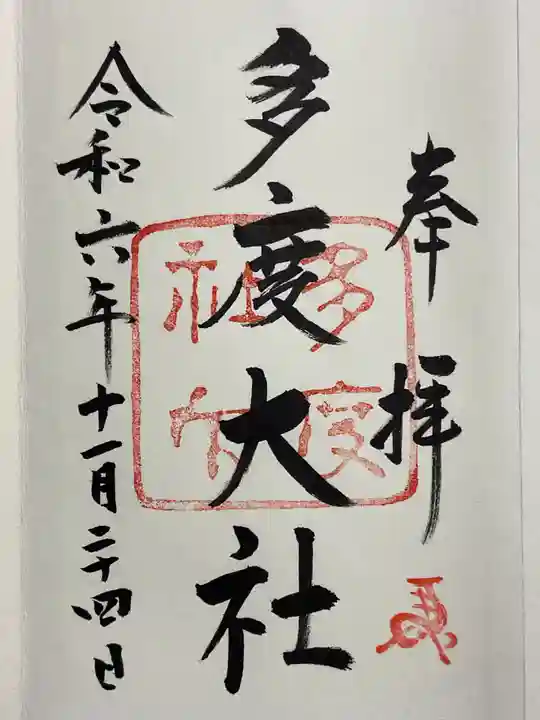 奉拝
多度大社
令和六年十一月二十四日
多度